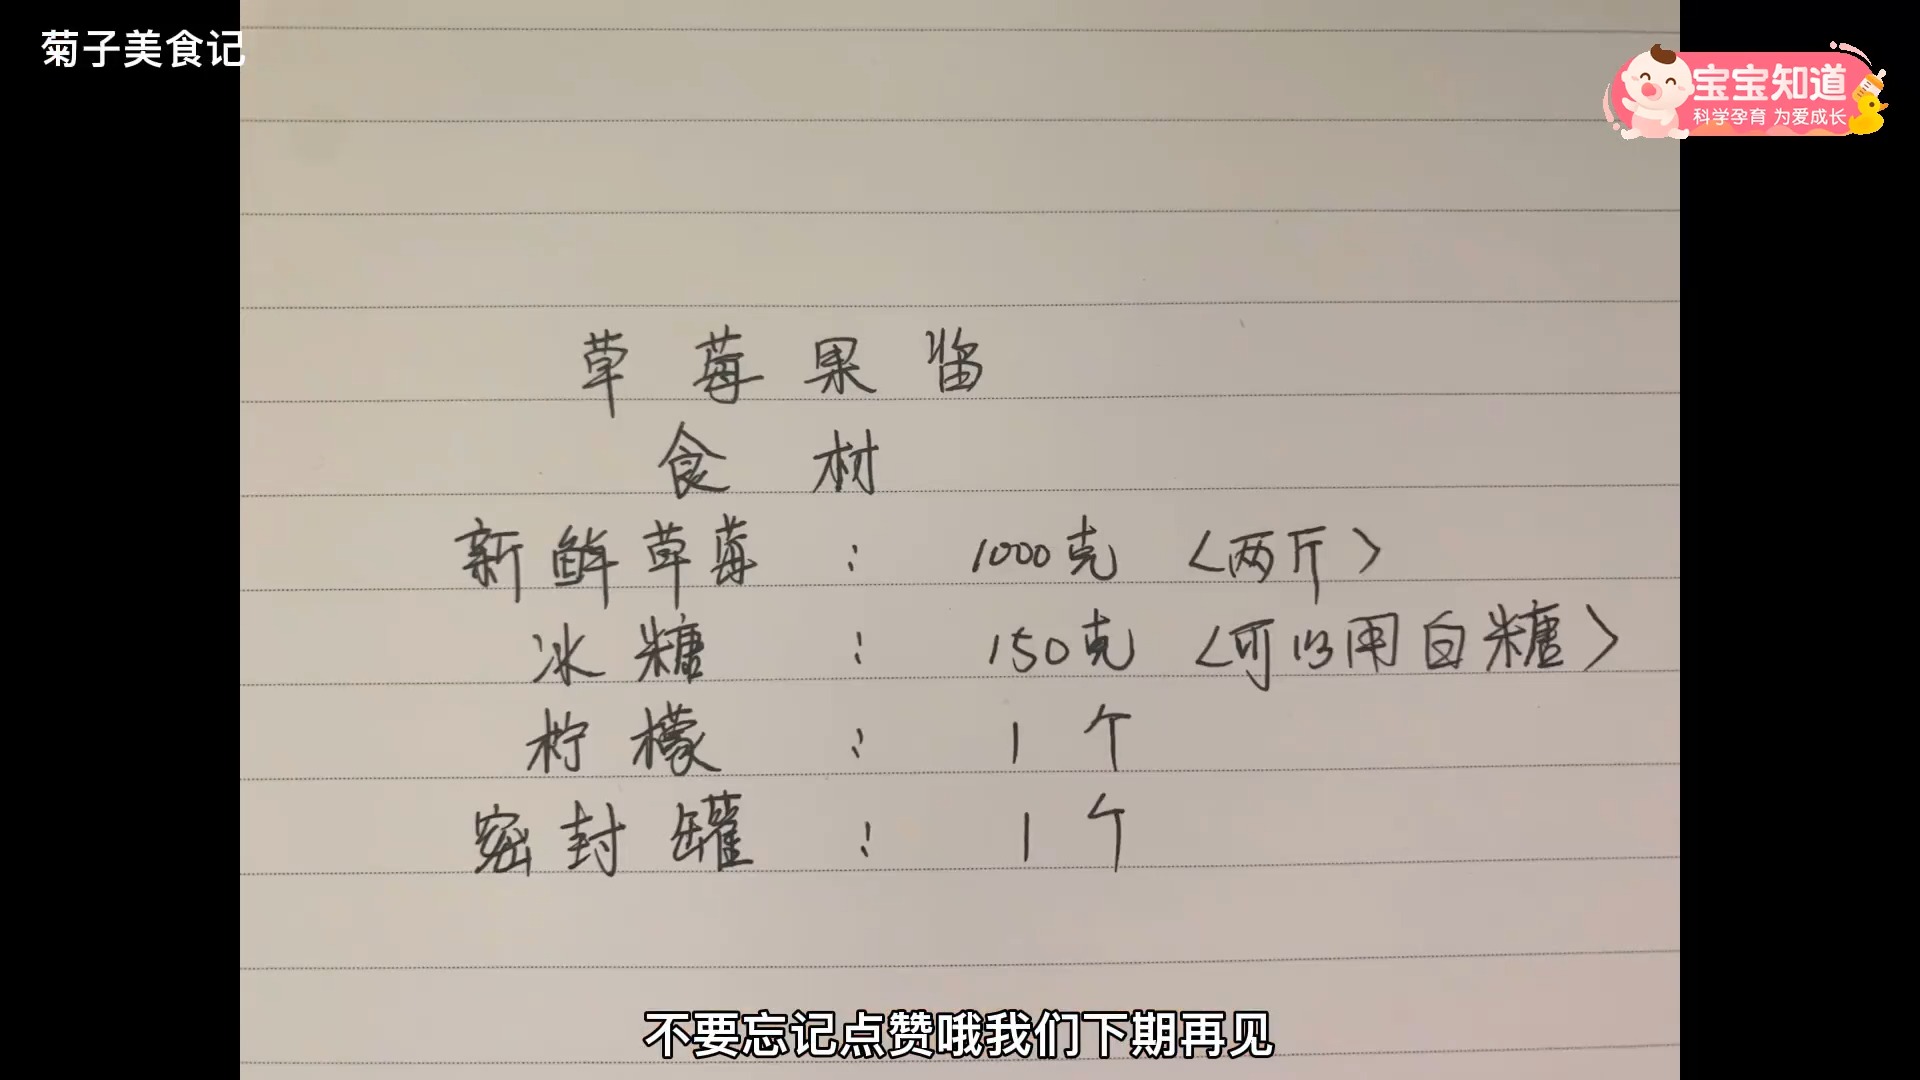 菊子美食记
宝宝知道
科学孕育 为爱成长
草莓果酱
食材
新鲜草莓：1000克〈两斤〉
冰糖：150克〈可以用白糖〉
柠檬：1个
密封罐：1个
不要忘记点赞哦我们下期再见